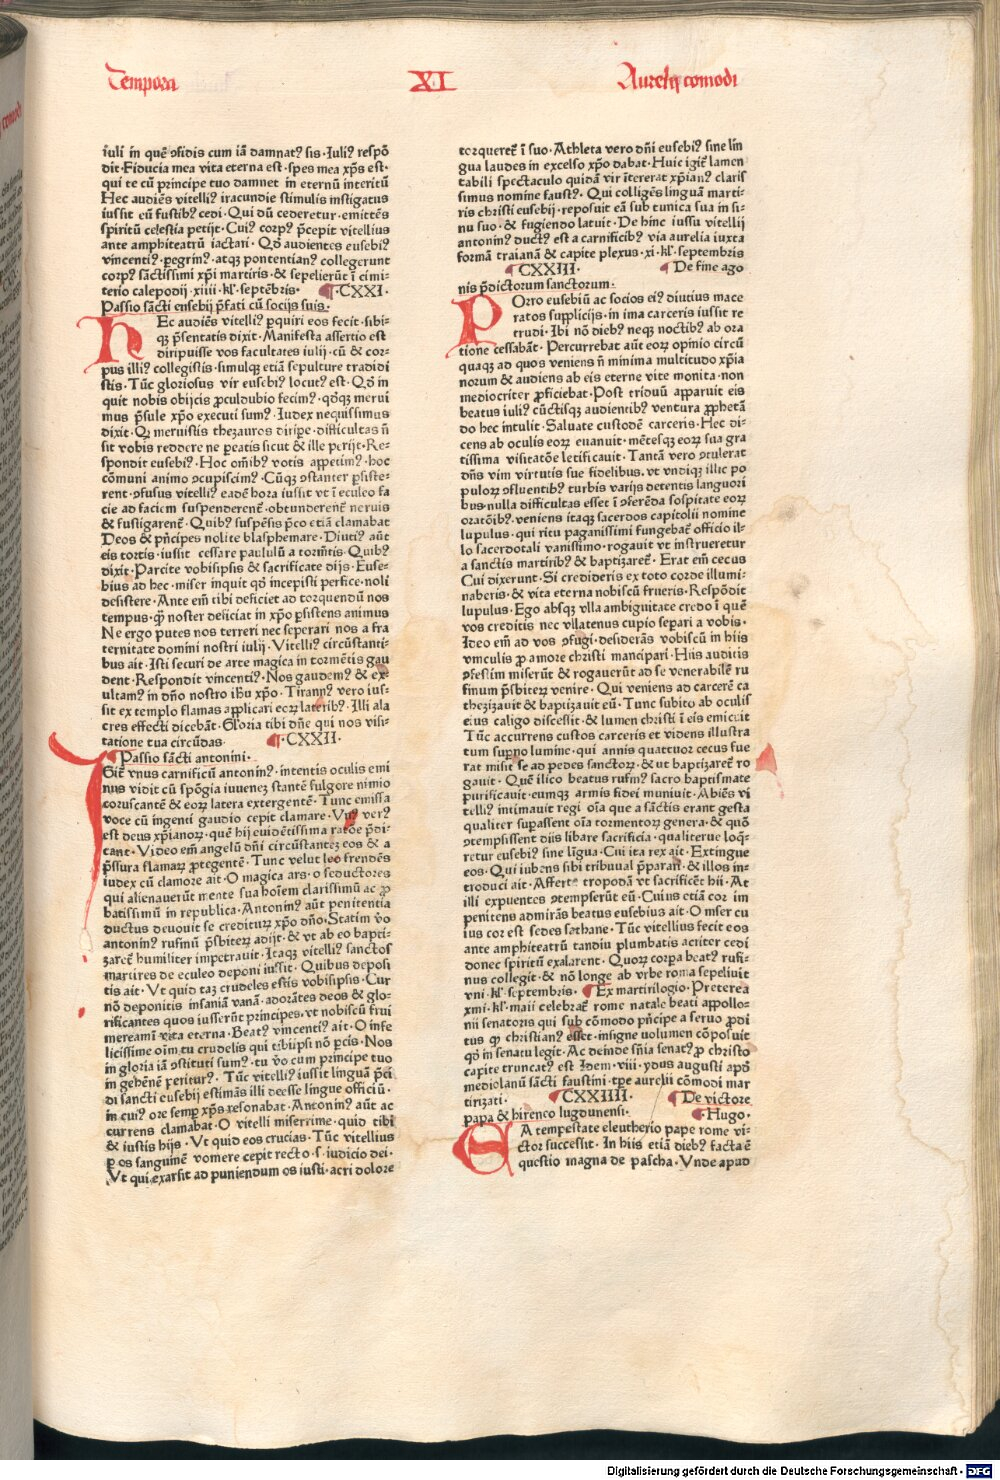 Tempora
XI
Aurelij comodi
iuli in quē ꝯfidis cum iā damnatꝰ sis·Iuliꝰ respō
dit·Fiducia mea vita eterna est·spes mea xp̄s est·
qui te cū principe tuo damnet in eternū interitū
Hec audiēs vitelliꝰ iracundie stimulis instigatus
iussit eū fustibꝰ cedi·Qui dū cederetur·emittēs
spiritū celestia petijt·Cuiꝰ corpꝰ p̄cepit vitellius
ante amphiteatrū iactari·Qd̄ audientes eusebiꝰ
vincentiꝰ peꝛgrinꝰ·atqꝫ pontentianꝰ collegerunt
corpꝰ sāctissimi xp̄i martiris·& sepelierūt ī cimi-
terio calepodij·xiiii·kl̄·septēbris· CXXI·
Passio sācti eusebij p̄fati cū socijs suis·
HEc audiēs vitelliꝰ ꝑquiri eos fecit·sibi-
qꝫ p̄sentatis dixit·Manifesta assertio est
diripuisse vos facultates iulij·cū & cor-
pus illiꝰ collegistis·simulqꝫ etiā sepulture tradidi
stis·Tūc gloriosus vir eusebiꝰ locutꝰ est·Qd̄ in
quit nobis obijcis ꝓculdubio fecimꝰ·qd̄qꝫ merui
mus p̄sule xp̄o executi sumꝰ·Iudex nequissimus
dixit·Qꝛ meruistis thezauros diripe·difficultas n̄
sit vobis reddere ne ꝑeatis sicut & ille perijt·Re-
spondit eusebiꝰ·Hoc om̄ibꝰ votis aꝑpetimꝰ·hoc
cōmuni animo ꝯcupiscimꝰ·Cūqꝫ ꝯstanter ꝑsiste-
rent·ꝯfusus vitelliꝰ eadē hora iussit vt ī eculeo fa
cie ad faciem suspenderent̄·obtunderent̄ neruis
& fustigarent̄·Quibꝰ suspēsis p̄co etiā clamabat
Deos & p̄ncipes nolite blasphemare·Diutiꝰ aūt
eis tortis·iussit cessare paululū a torm̄tis·Quibꝰ
dixit·Parcite vobisipsis & sacrificate dijs·Euse-
bius ad hec·miser inquit qd̄ incepisti perfice·noli
desistere·Ante em̄ tibi deficiet ad torquendū nos
tempus·qꝫ noster deficiat in xp̄o ꝑsistens animus
Ne ergo putes nos terreri nec seperari nos a fra
ternitate domini nostri iulij·Vitelliꝰ circūstanti-
bus ait·Isti securi de arte magica in tormētis gau
dent·Respondit vincentiꝰ·Nos gaudemꝰ & ex-
ultamꝰ in dn̄o nostro ih̄u xp̄o·Tirannꝰ vero ius-
sit ex templo flamas aꝑplicari eoꝝ lateribꝰ·Illi ala
cres effecti dicebāt·Gloria tibi dn̄e qui nos visi-
tatione tua circūdas· CXXII·
Passio sācti antonini·
IGit̄ vnus carnificū antoninꝰ·intentis oculis emi
nus vidit cū spōgia iuueneꝫ stantē fulgore nimio
coruscantē & eoꝝ latera extergentē·Tunc emissa
voce cū ingenti gaudio cepit clamare·Vnꝰ verꝰ
est deus xp̄ianoꝝ·quē hij euidētissima ratōe p̄di-
cant·Video em̄ angelū dn̄i circūstanteꝫ eos & a
p̄ssura flamaꝝ ꝓtegentē·Tunc velut leo frendēs
iudex cū clamore ait·O magica ars·o seductores
qui alienauerūt mente sua hoīem clarissimū ac ꝓ
batissimū in republica·Antoninꝰ aūt penitentia
ductus deuouit se crediturꝝ xp̄o dn̄o·Statim v̄o
antoninꝰ rufinū p̄sbiterꝝ adijt·& vt ab eo bapti-
zaret̄ humiliter impetrauit·Itaqꝫ vitelliꝰ sanctos
martires de eculeo deponi iussit·Quibus deposi
tis ait·Vt quid taꝫ crudeles estis vobisipsis·Cur
nō deponitis insaniā vanā·adorātes deos & glo-
rificantes quos iusserūt principes·vt nobiscū frui
mereamī vita eterna·Beatꝰ vincentiꝰ ait·O infe
licissime oīm tu crudelis qui tibiipsi nō ꝑcis·Nos
in gloria iā ꝯstituti sumꝰ·tu v̄o cum principe tuo
in gehēnē ꝑeritur·Tūc vitelliꝰ iussit linguā p̄ci
di sancti eusebij estimās illi deesse lingue officiū·
in cuiꝰ ore semꝑ xp̄s resonabat·Antoninꝰ aūt ac
currens clamabat·O vitelli miserrime·quid tibi
& iustis hijs·Vt quid eos crucias·Tūc vitellius
ꝑ os sanguinē vomere cepit recto·s·iudicio dei·
Vt qui exarsit ad puniendum os iusti·acri dolore
torqueret̄ ī suo·Athleta vero dn̄i eusebiꝰ sine līn
gua laudes in excelso xp̄o dabat·Huic igit̄ lamen
tabili spectaculo quidā vir ītererat xp̄ianꝰ claris
simus nomine faustꝰ·Qui colligēs linguā marti-
ris christi eusebij·reposuit eā sub tunica sua in si-
nu suo·& fugiendo latuit·De hinc iussu vitellij
antoninꝰ ductꝰ est a carnificibꝰ via aurelia iuxta
formā traianā & capite plexus·xi·kl̄·septembris
CXXIII· De fine ago
nis p̄dictorum sanctorum·
POrro eusebiū ac socios eiꝰ diutius mace
ratos supplicijs·in ima carceris iussit re
trudi·Ibi nō diebꝰ neqꝫ noctibꝰ ab ora
tione cessabāt·Percurrebat aūt eoꝝ opinio circū
quaqꝫ ad quos veniens n̄ minima multitudo xp̄ia
norum & audiens ab eis eterne vite monita·non
mediocriter ꝓficiebat·Post triduū apparuit eis
beatus iuliꝰ cūctisqꝫ audientibꝰ ventura ꝓphetā
do hec intulit·Saluate custodē carceris·Hec di-
cens ab oculis eoꝝ euanuit·mētesqꝫ eoꝝ sua gra
tissima visitatōe letificauit·Tantā vero ꝯtulerat
dn̄s vim virtutis sue fidelibus·vt vndiqꝫ illic po
puloꝝ ꝯfluentibꝰ turbis varijs detentis languori
bus·nulla difficultas esset ī ꝯferēda sospitate eoꝝ
oratōibꝰ·veniens itaqꝫ sacerdos capitolii nomine
lupulus·qui ritu paganissimi fungebat̄ officio il-
lo sacerdotali vanissimo·rogauit vt instrueretur
a sanctis martiribꝰ & baptizaret̄·Erat em̄ cecus
Cui dixerunt·Si credideris ex toto corde illumi-
naberis·& vita eterna nobiscū frueris·Respōdit
lupulus·Ego absqꝫ vlla ambiguitate credo ī quē
vos creditis nec vllatenus cupio seꝑari a vobis·
Ideo em̄ ad vos ꝯfugi·desiderās vobiscū in hiis
vinculis ꝓ amore christi mancipari·Hiis auditis
ꝯfestim miserūt & rogauerūt ad se venerabilē ru
finum p̄sbiterꝝ venire·Qui veniens ad carcerē ca
thezizauit & baptizauit eū·Tunc subito ab oculis
eius caligo discessit·& lumen christi ī eis emicuit
Tūc accurrens custos carceris et videns illustra
tum suꝑno lumine·qui annis quattuor cecus fue
rat misit se ad pedes sanctoꝝ·& vt baptizaret̄ ro
gauit·Quē ilico beatus rufinꝰ sacro baptismate
purificauit·eumqꝫ armis fidei muniuit·Abiēs vi
telliꝰ intimauit regi oīa que a sāctis erant gesta
qualiter suꝑassent oīa tormentoꝝ genera·& quō
ꝯtempsissent diis libare sacrificia·qualiterue loq̄-
retur eusebiꝰ sine līgua·Cui ita rex ait·Extingue
eos·Qui iubens sibi tribunal p̄parari·& illos in-
troduci ait·Afferte tropodā vt sacrificēt hii·At
illi expuentes ꝯtempserūt eū·Cuius etiā cor im
penitens admirās beatus eusebius ait·O miser cu
ius cor est sedes sathane·Tūc vitellius fecit eos
ante amphiteatrū tandiu plumbatis acriter cedi
donec spiritū exalarent·Quoꝝ corpa beatꝰ rufi-
nus collegit·& nō longe ab vrbe roma sepeliuit
vni·kl̄·septembris· Ex martirilogio·Preterea
xmi·kl̄·maii celebrat̄ rome natale beati appollo-
nii senatoris qui sub cōmodo p̄ncipe a seruo ꝓdi
tus qꝫ christianꝰ esset·insigne uolumen cōposuit
qd̄ in senatu legit·Ac deinde sn̄ia senatꝰ ꝓ christo
capite truncatꝰ est Idem·viii·ydus augusti apd̄
mediolanū sācti faustini·tꝑe aurelii cōmodi mar
tirizati· CXXIIII· De victore
papa & hirenco lugdunensi· Hugo·
EA tempestate eleutherio pape rome vi-
ctor successit·In hiis etiā diebꝰ facta ē
questio magna de pascha·Vnde apud
Digitalisierung gefördert durch die Deutsche Forschungsgemeinschaft - DFG